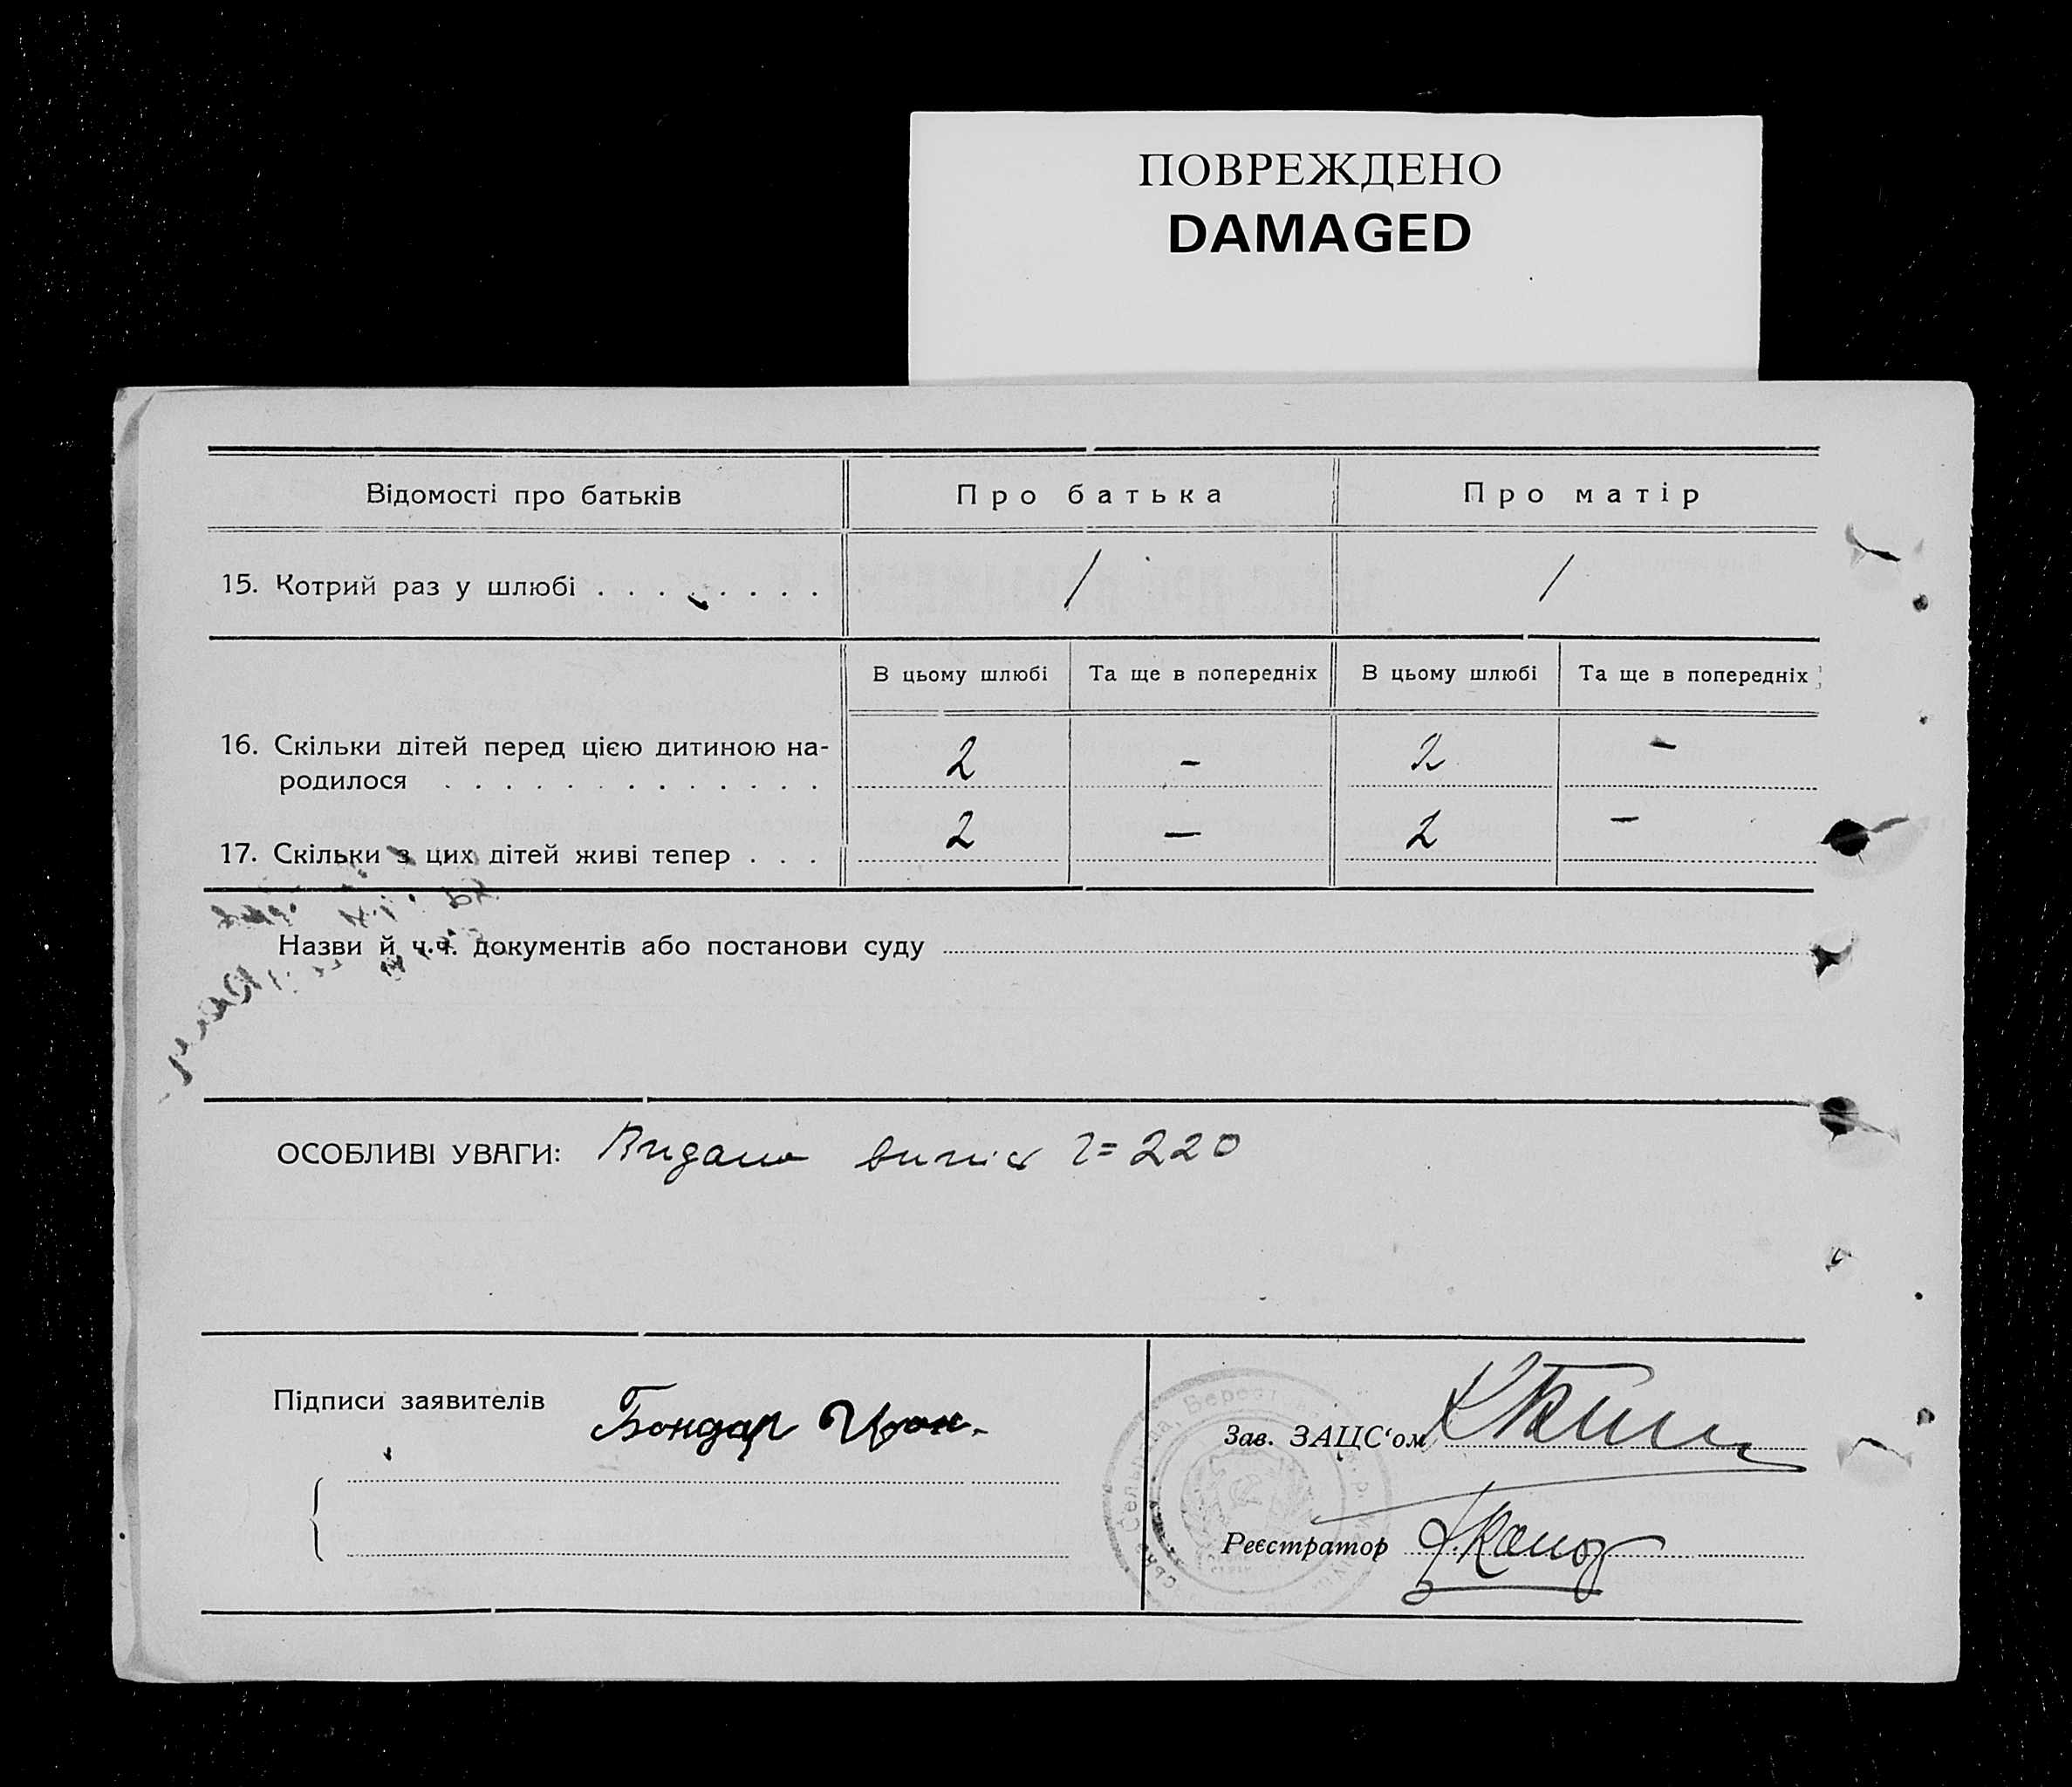 ПОВРЕЖДЕНО
DAMAGED
Відомості про батьків Про батька Про матір
15. Котрий раз у шлюбі . . . . . . . . / /
В цьому шлюбі Та ще в попередніх В цьому шлюбі Та ще в попередніх
16. Скільки дітей перед цією дитиною на-
родилося . . . . . . . . . . . . . 2 - 2 -
17. Скільки з цих дітей живі тепер . . . 2 — 2 -
Назви й ч.ч. документів або постанови суду
ОСОБЛИВІ УВАГИ: Видано 220
Підписи заявителів Бондар
Зав. ЗАЦС‘ом
Реєстратор